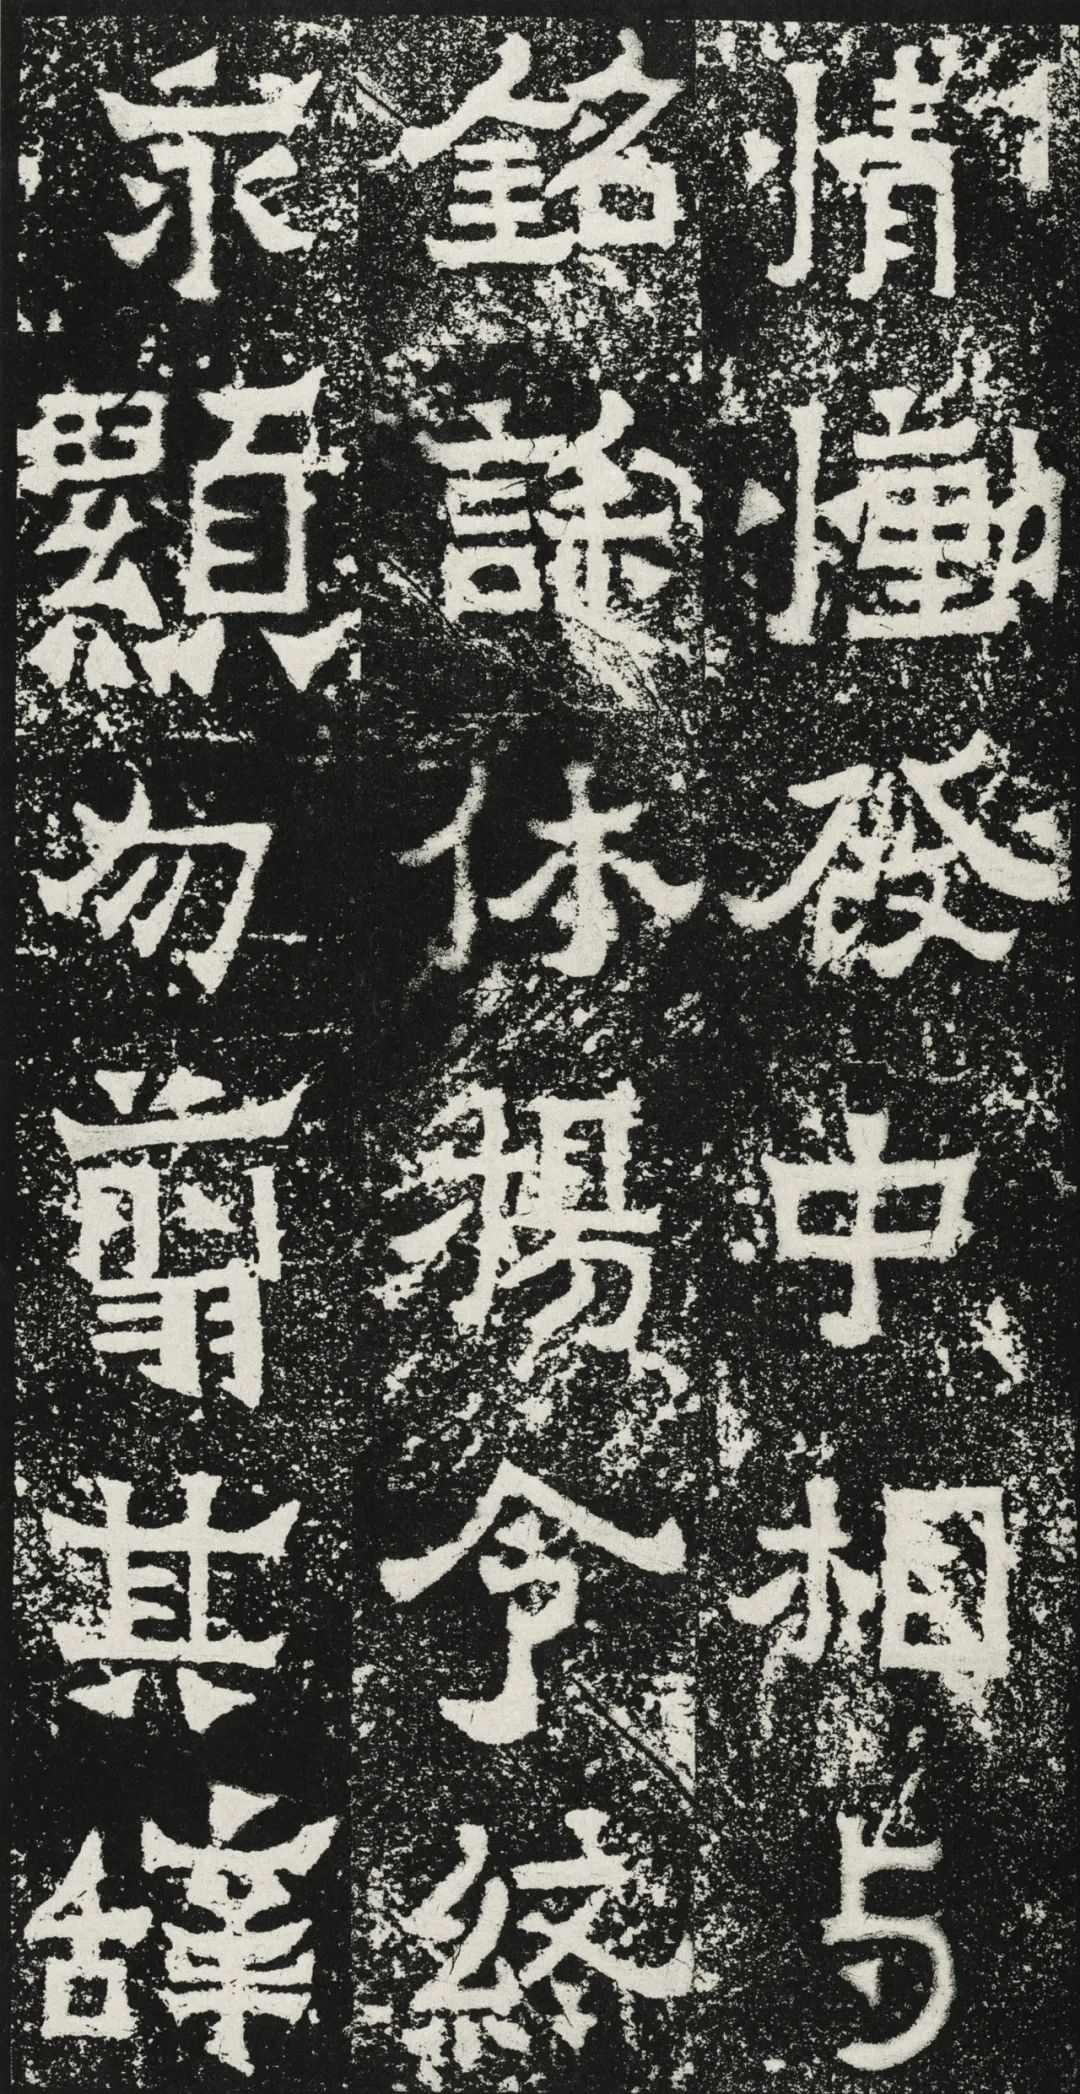 情慟發中相与
銘誄休揚令終
永顯勿翦其辭